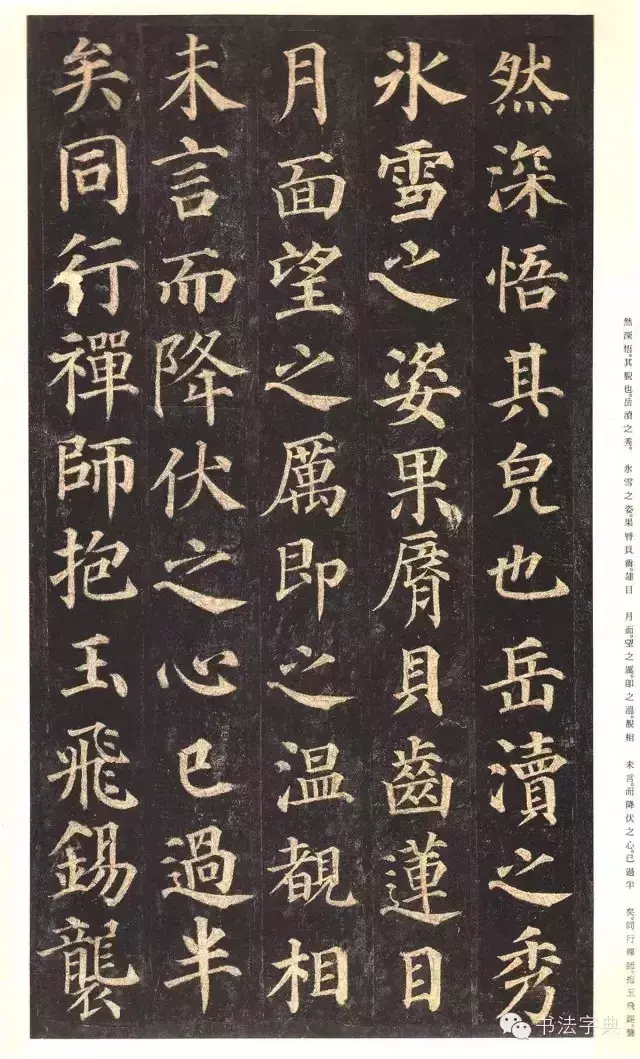 然深悟其皃也岳瀆之秀
氷雪之姿果脣貝齒蓮目
月面望之厲即之温覩相
未言而降伏之心已過半
矣同行禪師抱玉飛錫襲
然深悟。其貌也。岳瀆之秀。 氷雪之姿。果脣貝齒。蓮目 月面。望之厲。即之溫。覩相 未言。而降伏之心。已過半 矣。同行禪師。抱玉飛錫。襲
书法字典